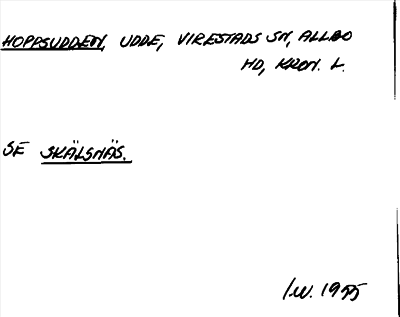 HOPPSUDDEN, UDDE, VIRESTADS SN, ALLBO
HD, KRON. L.
SE SKÄLSNÄS.
I.W. 1955